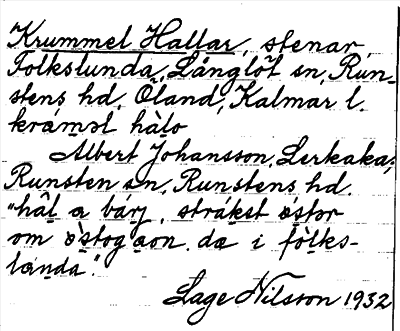 Krummel Hallar, stenar,
Folkslunda, Långlöt sn, Run-
stens hd, Öland, Kalmar l.
kràməl hàlo
Albert Johansson, Lerkaka,
Runsten sn, Runstens hd.
"hâl a bárj, strákst östor
om östog aon da i fölks-
landa".
Lage Nilsson 1932